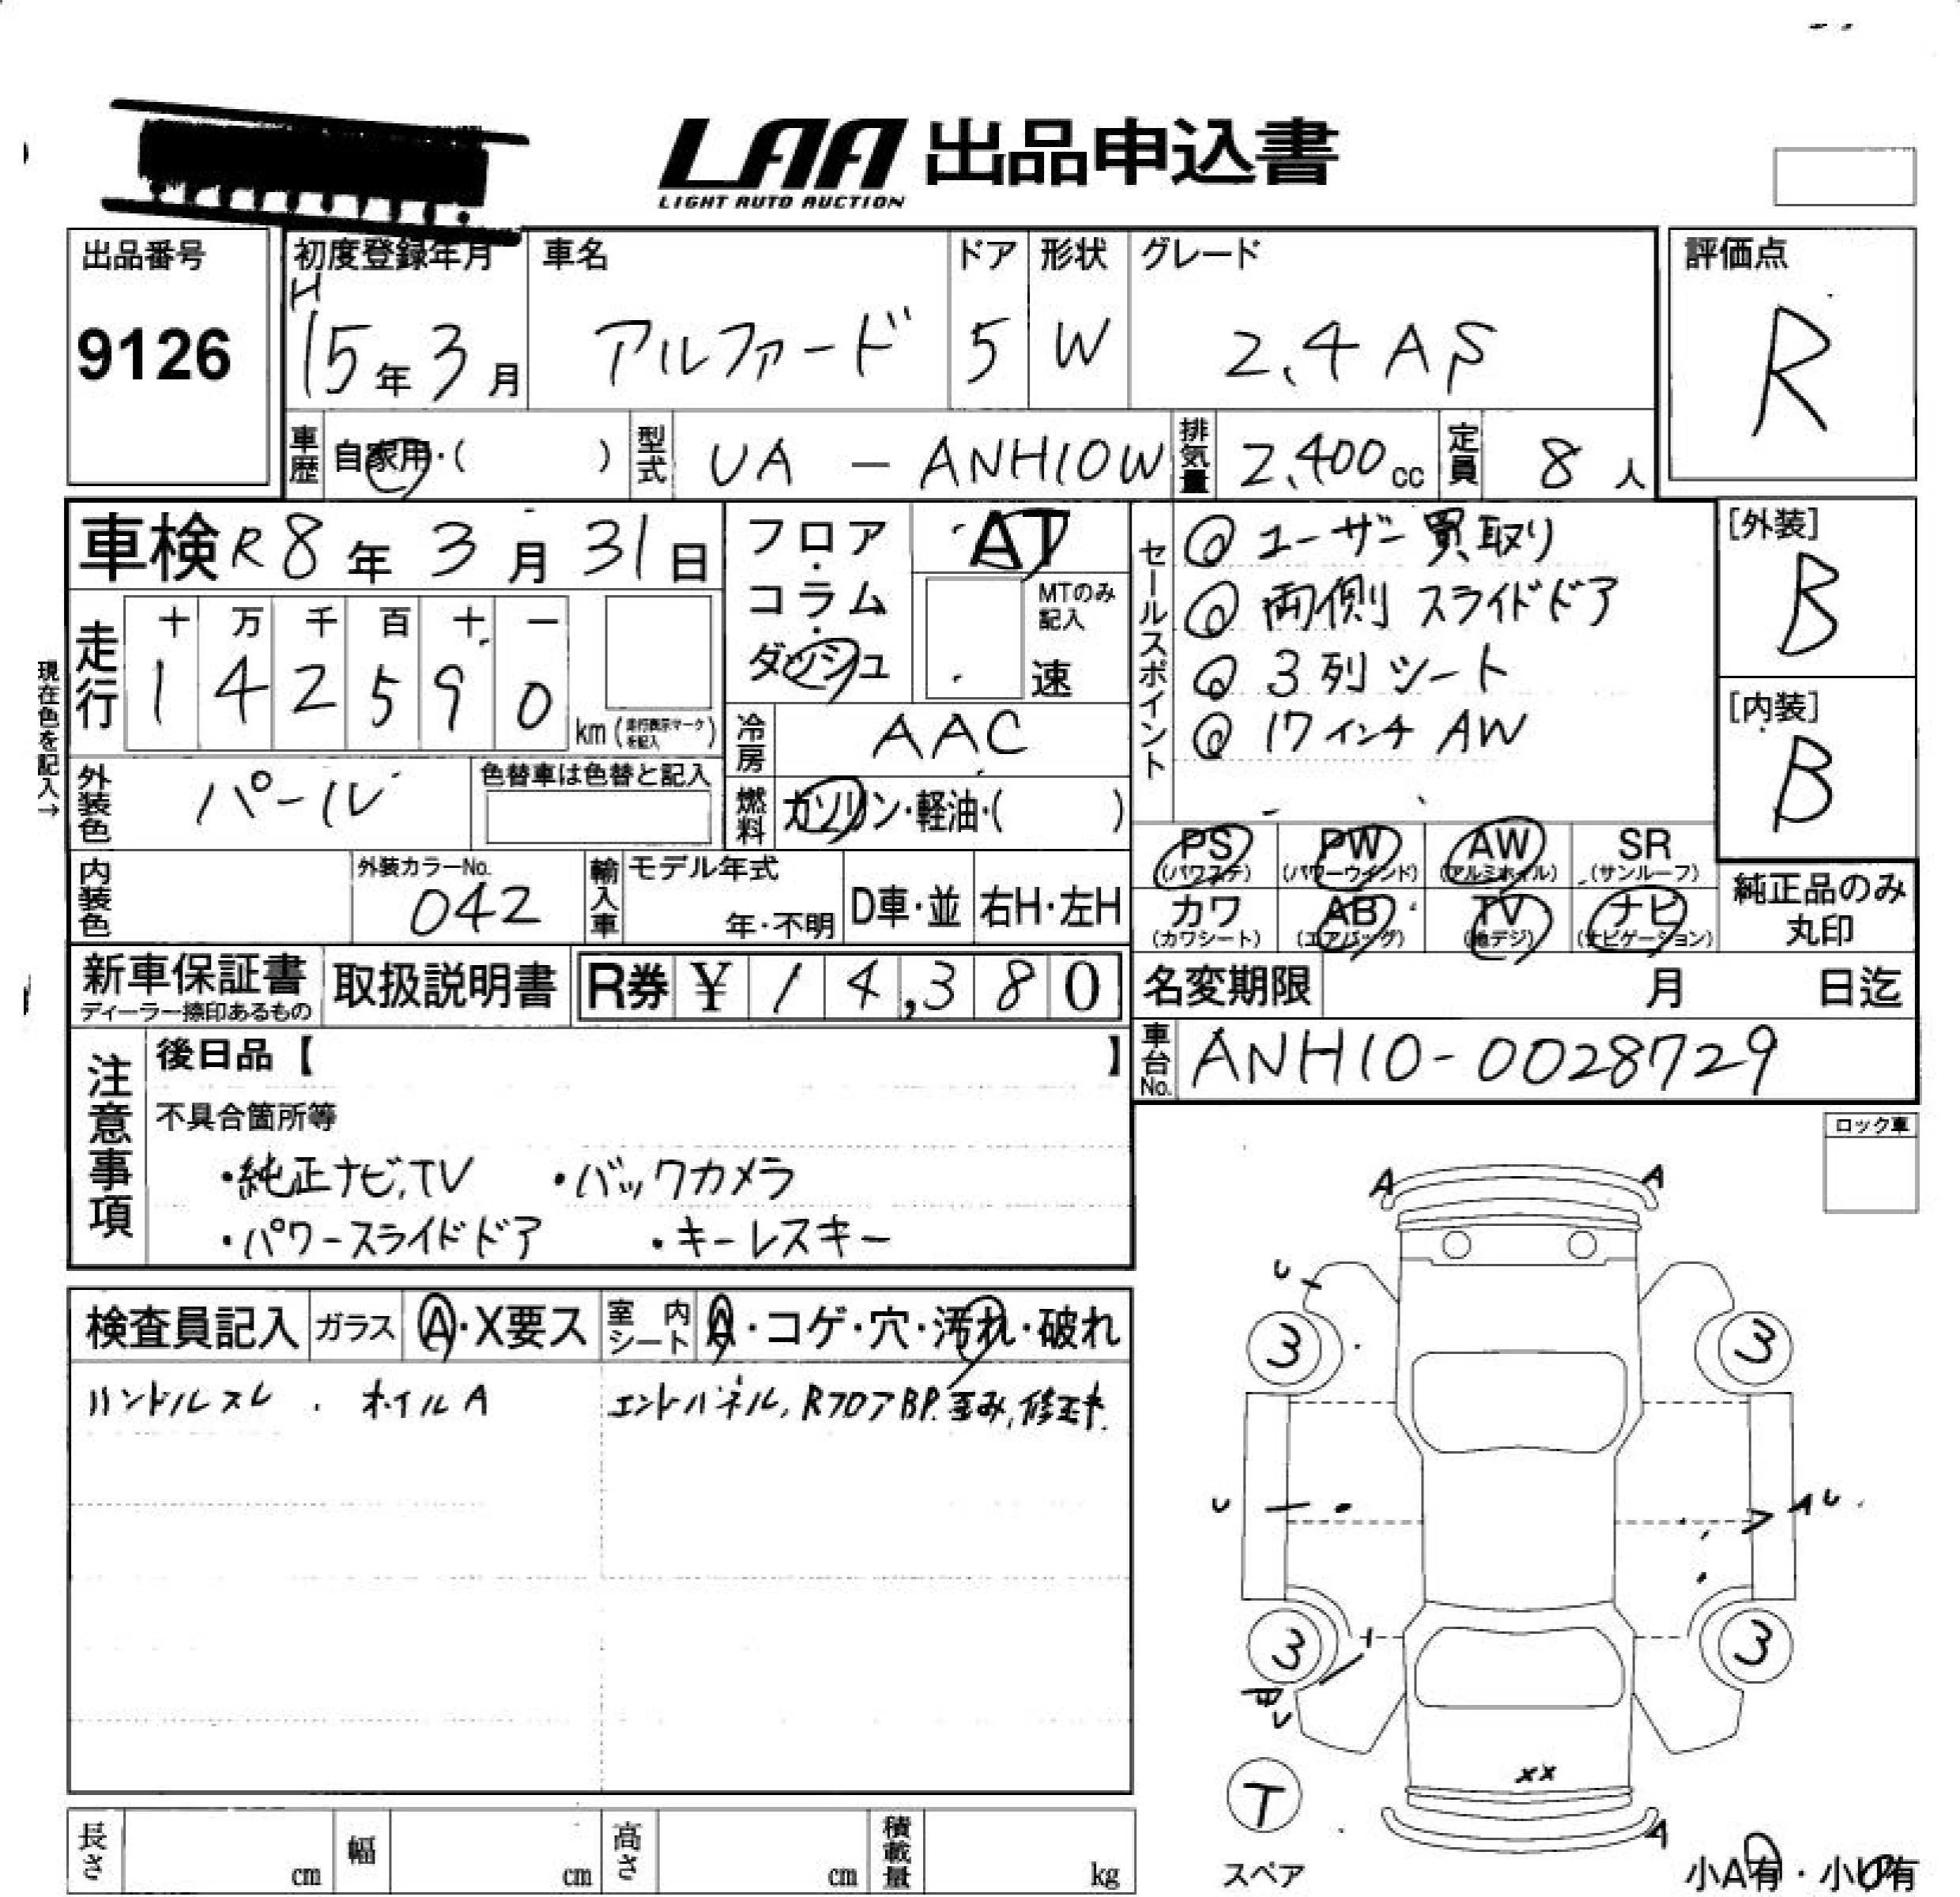 LAA 出品申込書
LIGHT AUTO AUCTION
出品番号
9126
初度登録年月
H15年3月
車名
アルファード
ドア
5
形状
W
グレード
2.4 AS
評価点
R
車歴
自家用・( )
型式
UA - ANH10W
排気量
2,400cc
定員
8人
車検 R8年3月31日
フロア・コラム・ダッシュ
AT
MTのみ記入
速
セールスポイント
◎ ユーザー買取り
◎ 両側スライドドア
◎ 3列シート
◎ 17インチ AW
[外装]
B
[内装]
B
現在色を記入→
走行
十 万 千 百 十 一
1 4 2 5 9 0
km(走行表示マークを記入)
冷房
AAC
外装色
パール
色替車は色替と記入
燃料
ガソリン・軽油・( )
PS
(パワステ)
PW
(パワーウインド)
AW
(アルミホイル)
SR
(サンルーフ)
カワ
(カワシート)
AB
(エアバッグ)
TV
(地デジ)
ナビ
(ナビゲーション)
純正品のみ丸印
内装色
外装カラーNo.
042
輸入車
モデル年式
年・不明
D車・並
右H・左H
新車保証書
ディーラー捺印あるもの
取扱説明書
R券 ¥ 14,380
名変期限 月 日迄
車台No.
ANH10-0028729
注意事項
後日品【 】
不具合箇所等
・純正ナビ,TV ・バックカメラ
・パワースライドドア ・キーレスキー
ロック車
A A
U
3 3
U AU
3 3
U
T
スペア
XX
A
小A有・小U有
検査員記入
ガラス
A・X要ス
室内シート
A・コゲ・穴・汚れ・破れ
ハンドルスレ . ホイルA
エンドパネル, Rフロア BP. 歪み, 修正才.
長さ cm
幅 cm
高さ cm
積載量 kg